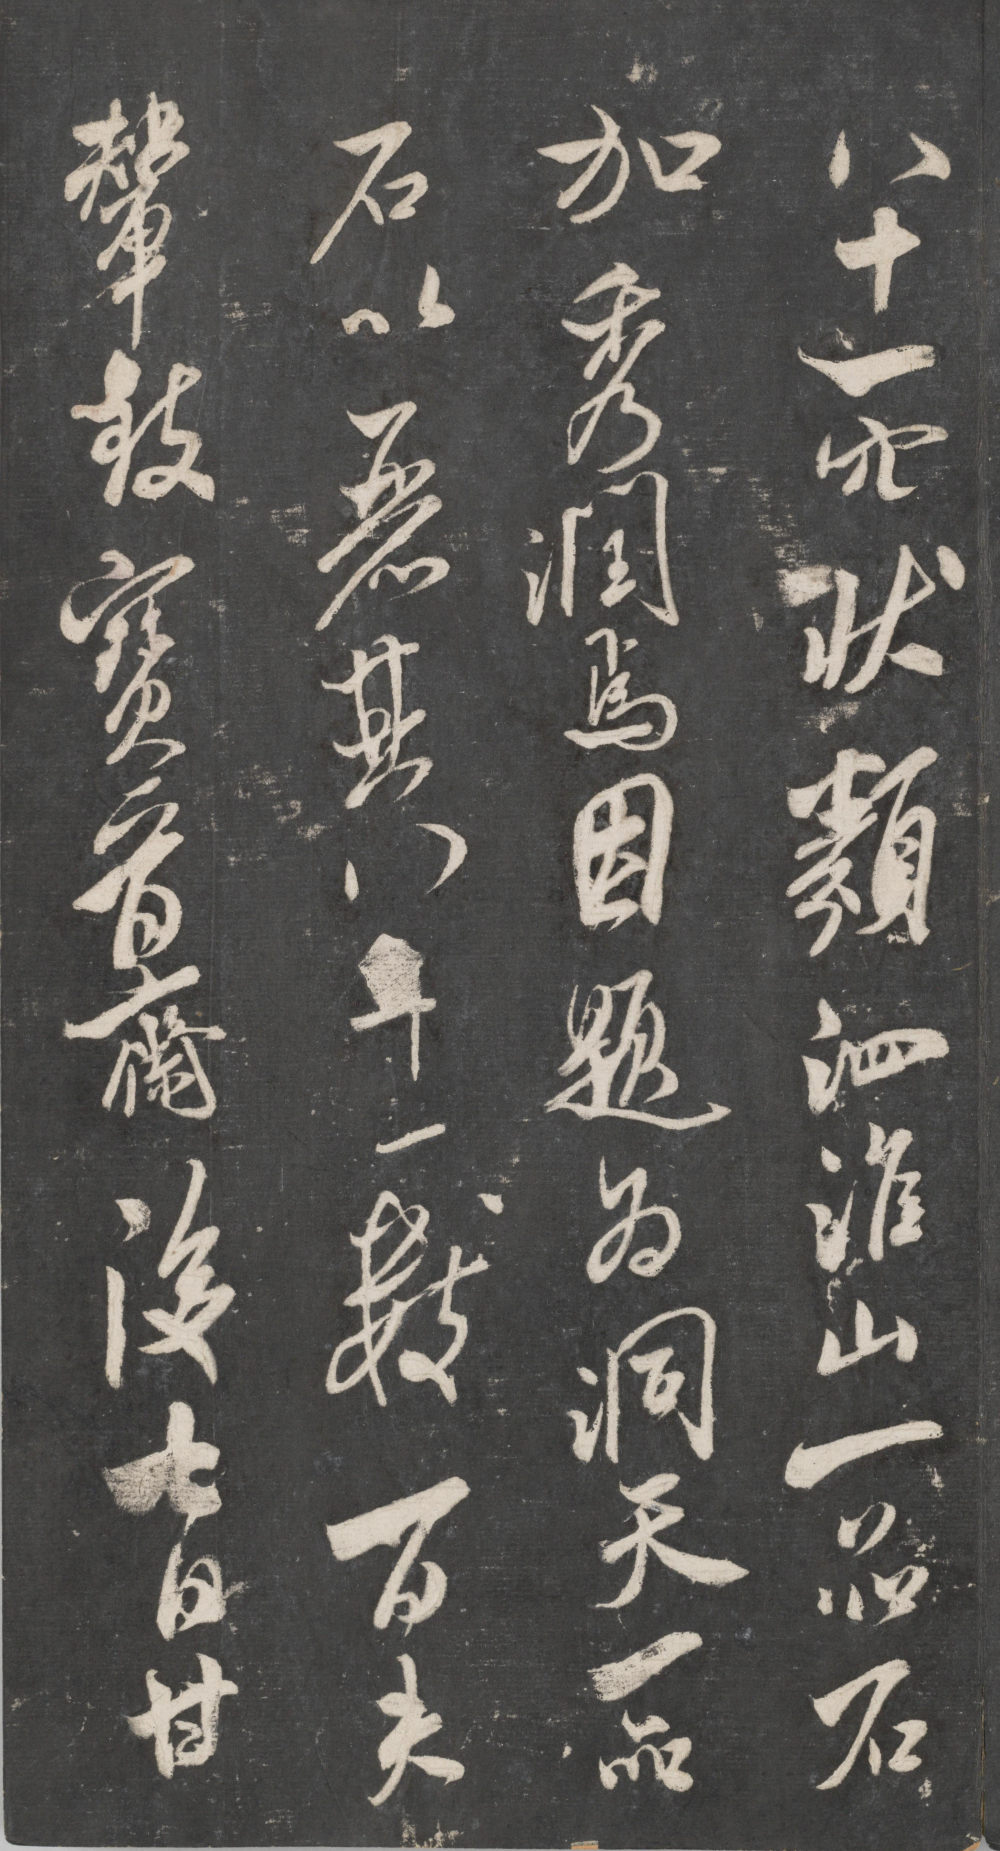 八十一穴狀類泗淮山一品石
加秀潤焉因題為洞天一品
石以麗其八十一數百夫
輦致寶晉齋後七日甘